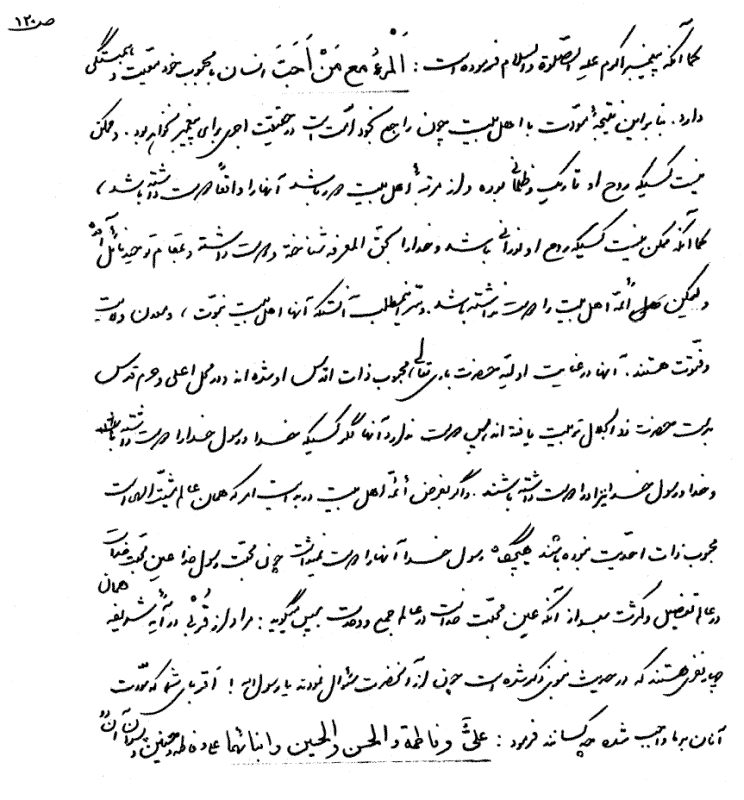 ص ۱۲۰
کما آنکه پیغمبر اکرم علیه الصّلوة و السلام فرموده است : اَلْمَرْءُ مَعَ مَنْ اَحَبَّ انسان با محبوب خود معیّت و همبستگی
دارد . بنابراین نتیجهٔ مودّت با اهل بیت چون راجع بخود امّت است در حقیقت اجری برای پیغمبر نخواهد بود . و ممکن
نیست کسیکه روح او تاریک و ظلمانی بوده و از مرتبهٔ اهل بیت دور باشد آنها را واقعاً دوست داشته باشد ،
کما آنکه ممکن نیست کسیکه روح او نورانی باشد و خدا را بحق المعرفه شناخته و دوست داشته و بمقام توحید نائل آمده
و لیکن ائمّهٔ اهل بیت را دوست نداشته باشد . و سرّ اینمطلب آنستکه آنها اهل بیت نبوّت ، و معدن ولایت
و فتوّت هستند . آنها در عنایت اولیّه حضرت باری تعالی محبوب ذات اقدس او شده اند و در محل اعلی و حرم قدس
بدست حضرت ذو الجلال تربیت یافته اند پس دوست ندارد آنها مگر کسیکه خدا و رسول خدا را دوست داشته باشد
و خدا و رسول خدا نیز او را دوست داشته باشند . و اگر بفرض ائمّهٔ اهل بیت در بدایت امر که همان عالم مشیّت الهی است
محبوب ذات احدیّت نبوده باشند هیچگاه رسول خدا آنها را دوست نمیداشت چون محبّت رسول خدا عین محبّت خداست
در عالم تفصیل و کثرت بعد از آنکه عین محبّت خداست در عالم جمع و وحدت پس میگوید : مراد از قُرْبی در آیه شریفه همان
چهار نفری هستند که در حدیث نبوی ذکر شده است چون از آنحضرت سؤال نمودند یا رسول الله ! اقربای شما که مودّت
آنان بر ما واجب شده چه کسانند فرمود : علیٌّ و فاطمة و الحسن و الحسین و ابنائهما علی و فاطمه و حسنین و پسران آن دو